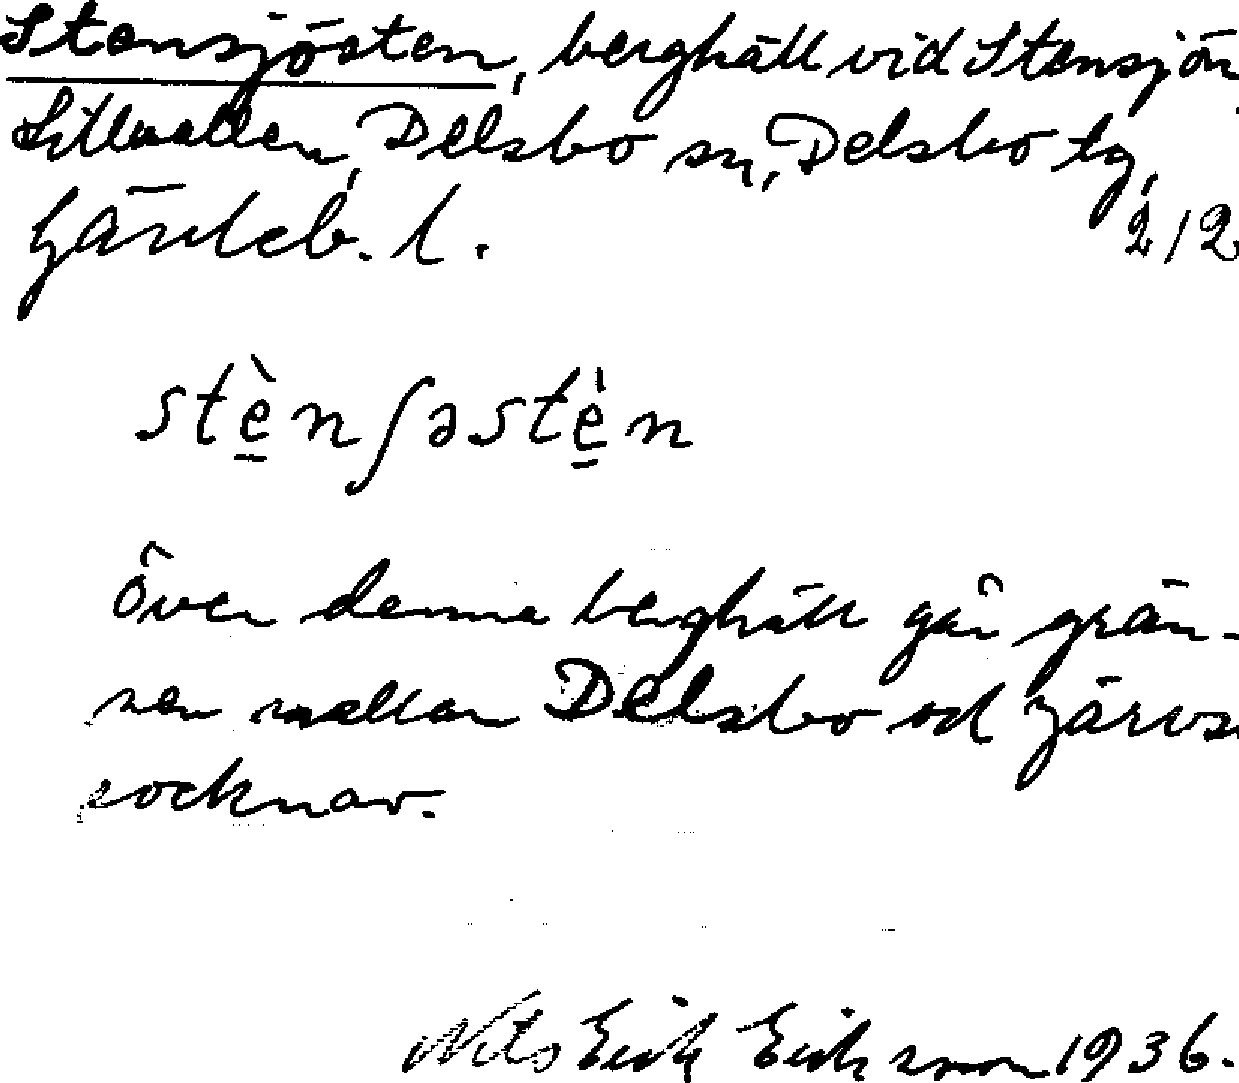 Stensjösten, berghäll vid Stensjön
Lillvallen, Delsbo sn, Delsbo tg,
Gävleb. l. 2/2
stènʃəstèn
Över denna berghäll går grän-
sen mellan Delsbo och Järvsö
socknar.
Nils Erik Eriksson 1936.